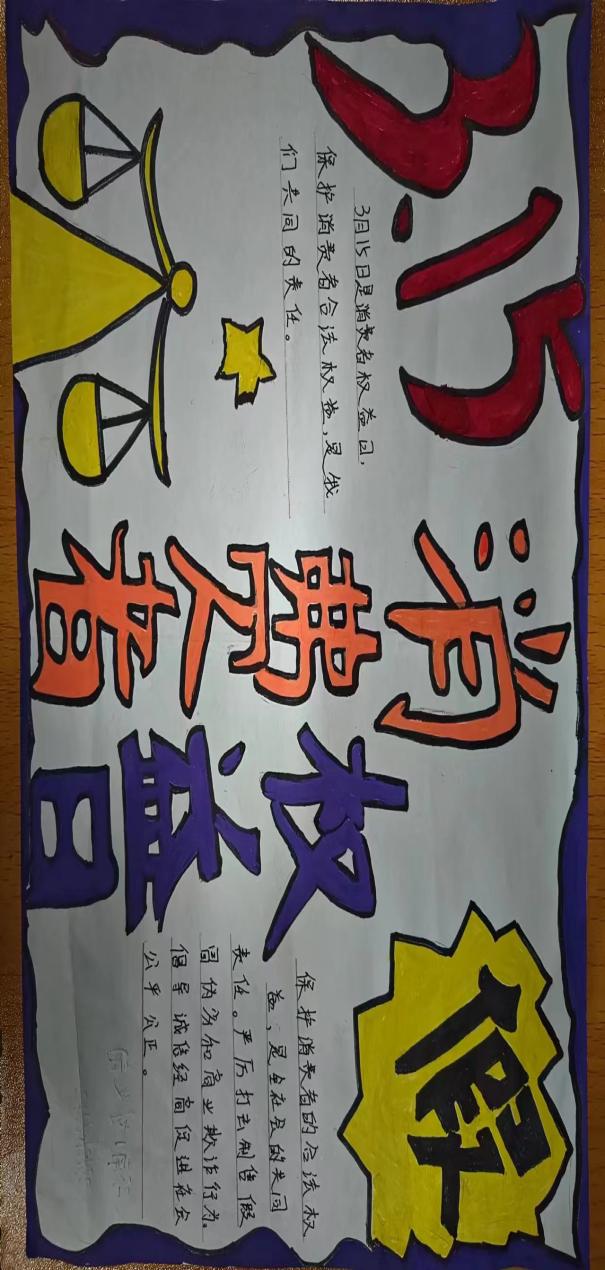 3.15
3月15日是消费者权益日,
保护消费者合法权益,是我
们共同的责任。
消费者
权益日
假
保护消费者的合法权
益,是全社会的共同
责任。严厉打击制售假
冒伪劣和商业欺诈行为。
倡导诚信经商促进社会
公平公正。